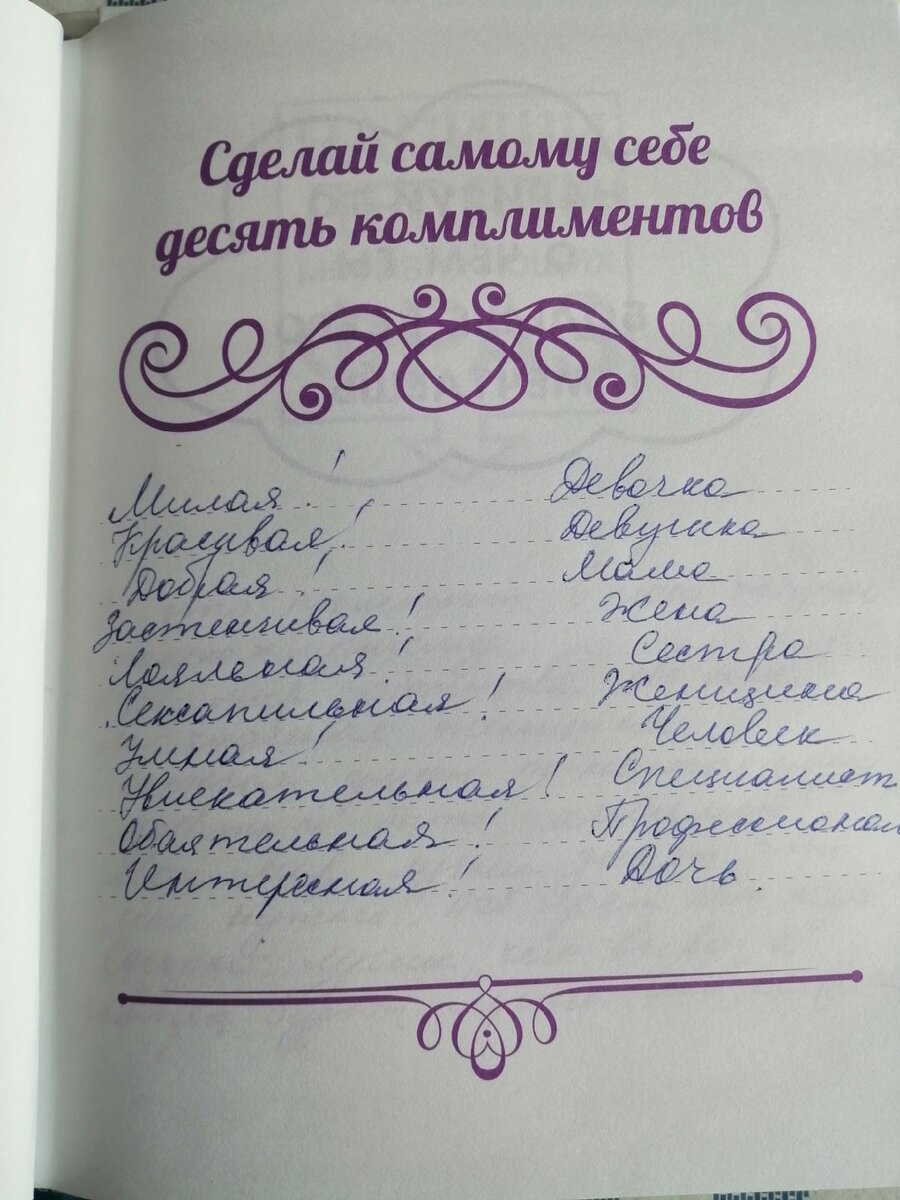 Сделай самому себе
десять комплиментов
Милая! Девочка
Красивая! Девушка
Добрая! Мама
Застенчивая! Жена
Лояльная! Сестра
Сексапильная! Женщина
Умная! Человек
Увлекательная! Специалист
Обаятельная! Профессионал
Интересная! Дочь.